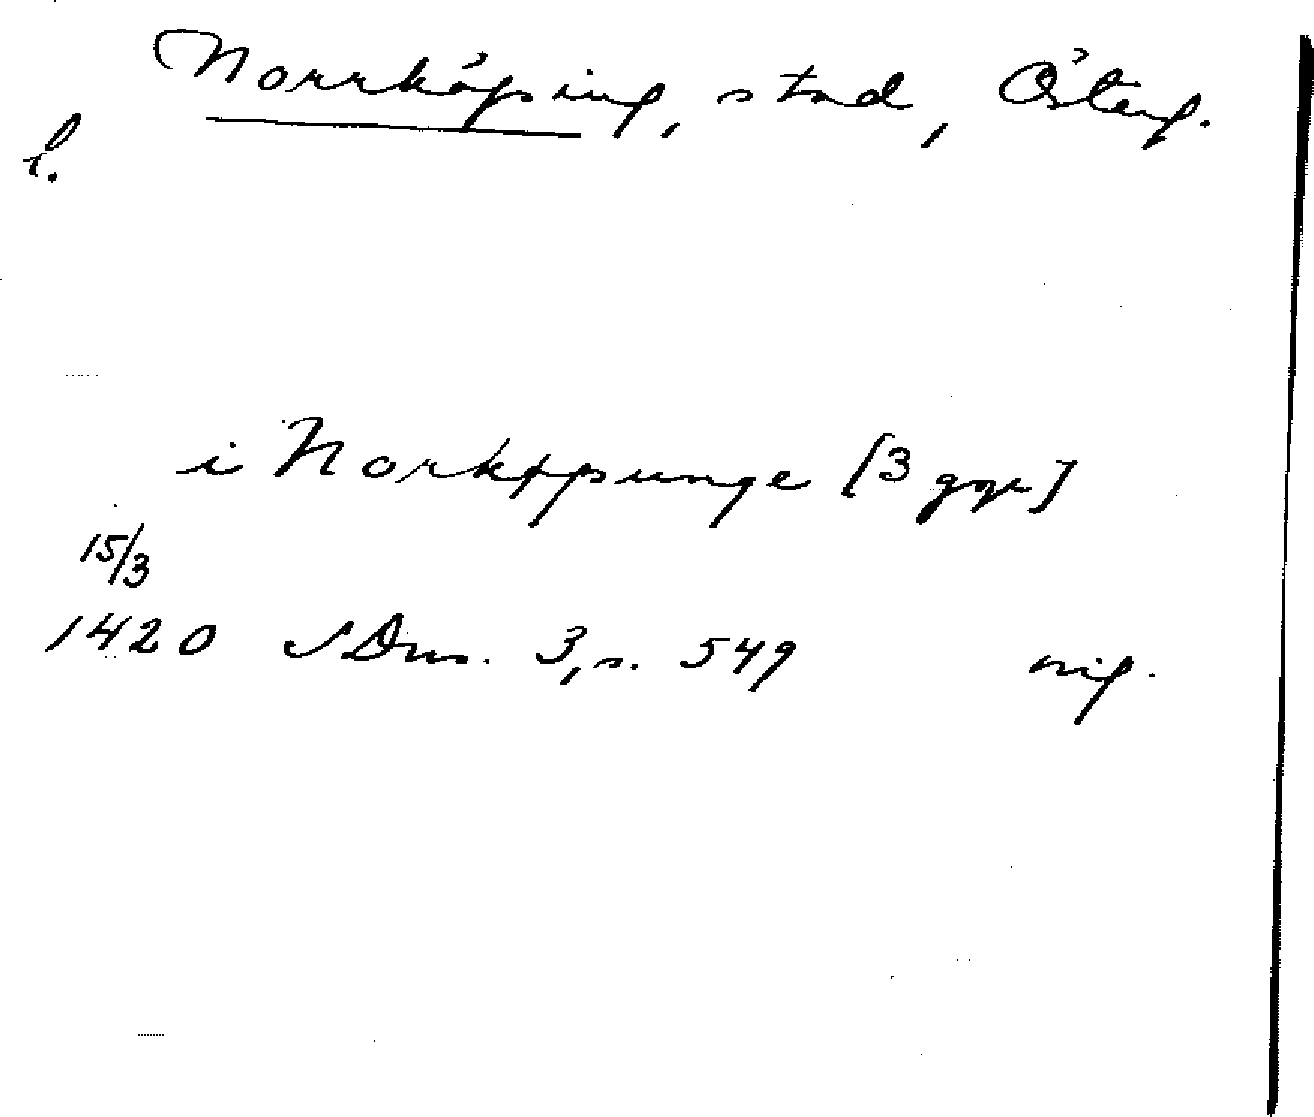 Norrköping, stad, Österg.
l.
i Norkøpunge [3 ggr]
15/3
1420 SDns. 3, s. 549 sig.